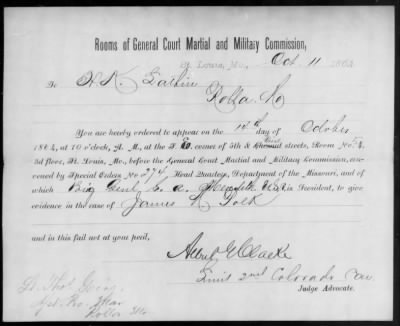 Rooms of General Court Martial and Military Commission,
St. Louis, Mo., Oct 11 1864
To
Rolla Mo
You are hereby ordered to appear on the 14th day of October
1864, at 10 o'clock, A. M., at the corner of 5th & streets, Room No.
3d floor, St. Louis, Mo., before the General Court Martial and Military Commission, con-
vened by Special Orders No. 274, Head Quarters, Department of the Missouri, and of
which Brig Genl is President, to give
evidence in the case of James Polk
and in this fail not at your peril,
Albert E Clarke
Lieut 2nd Colorado Cav
Judge Advocate.
Rolla Mo